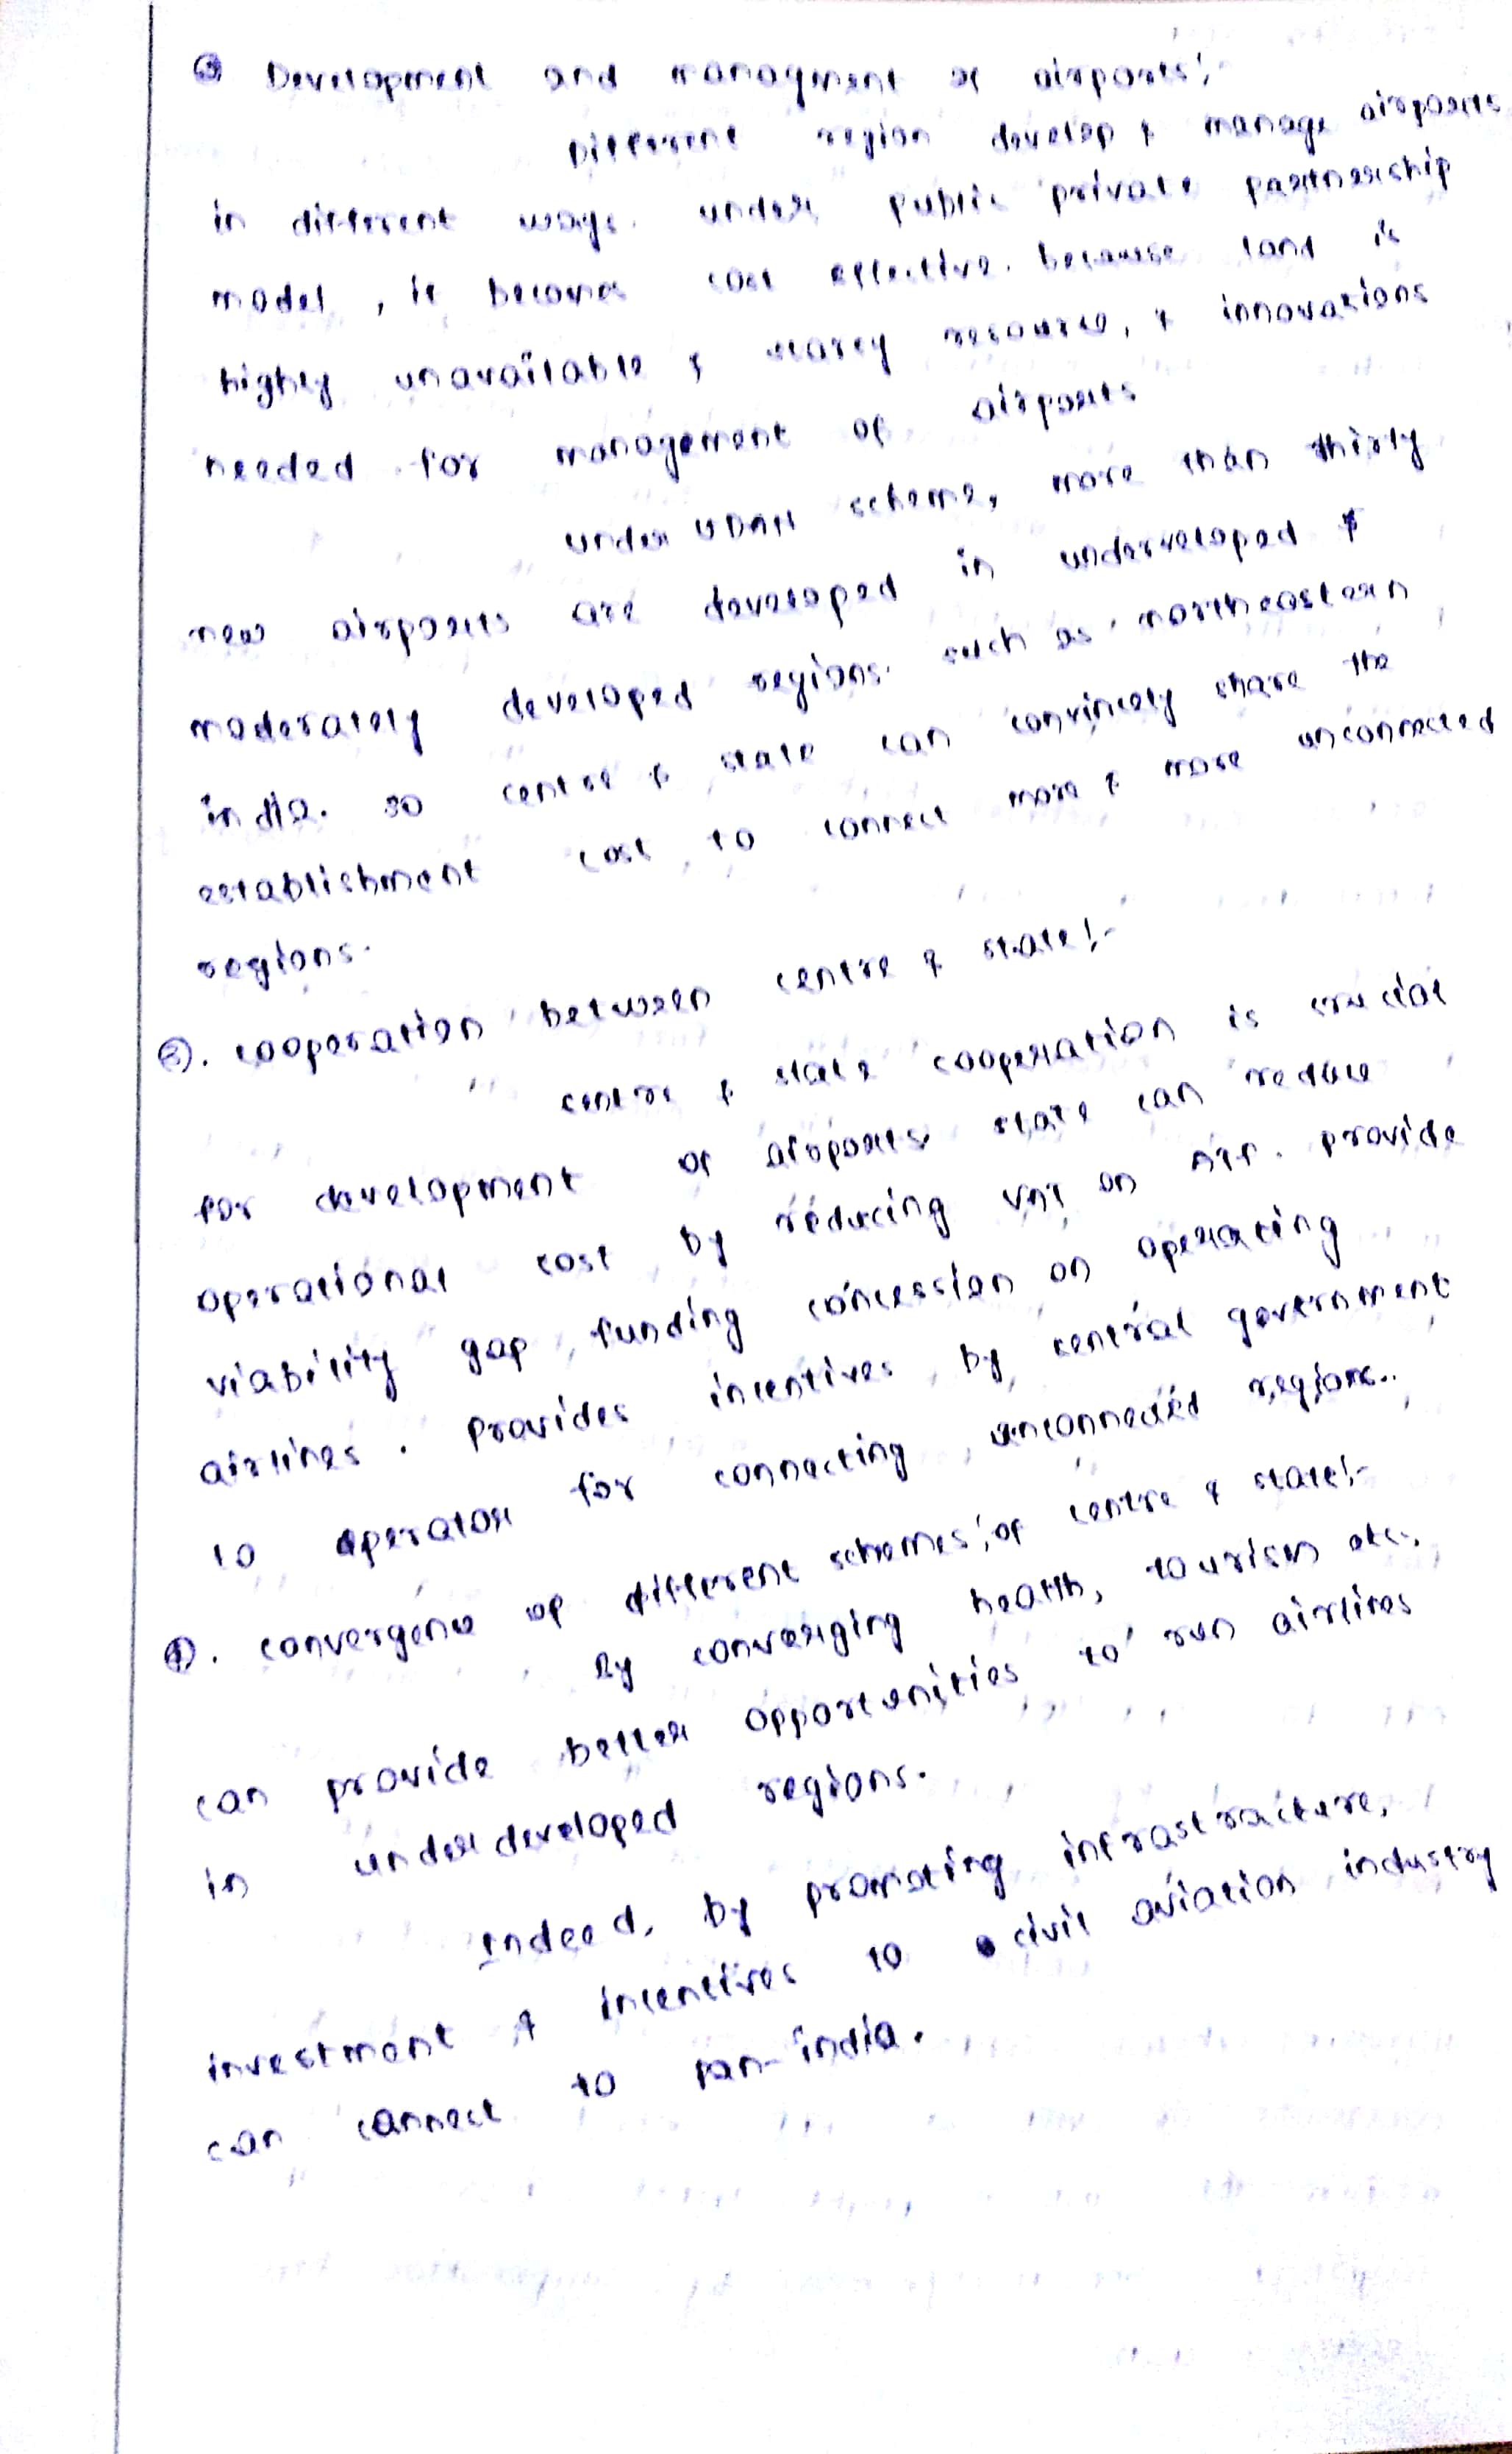 ③ Development and managment of airports:-
Different region develop & manage airports
in different ways. under public private partnership
model, it becomes cost effective. because land is
highly unavailable & scarcy resource, & innovations
needed for management of airports.
under UDAN scheme, more than thirty
new airports are developed in underveloped &
moderately developed regions. such as northeastern
india. so centre & state can convincely share the
establishment cost to connect more & more unconnected
regions.
. cooperation between centre & state:-
centre & state cooperation is crucial
for development of airports. state can reduce
operational cost by reducing VAT on ATF. provide
viability gap funding concession on operating
airlines. provides incentives by central government
to operator for connecting unconnected regions..
. convergence of different schemes of centre & state:-
By converging health, tourism etc.,
can provide better opportunities to run airlines
in underdeveloped regions.
Indeed, by promoting infrastructure,
investment & incentives to civil aviation industry
can connect to pan-india.